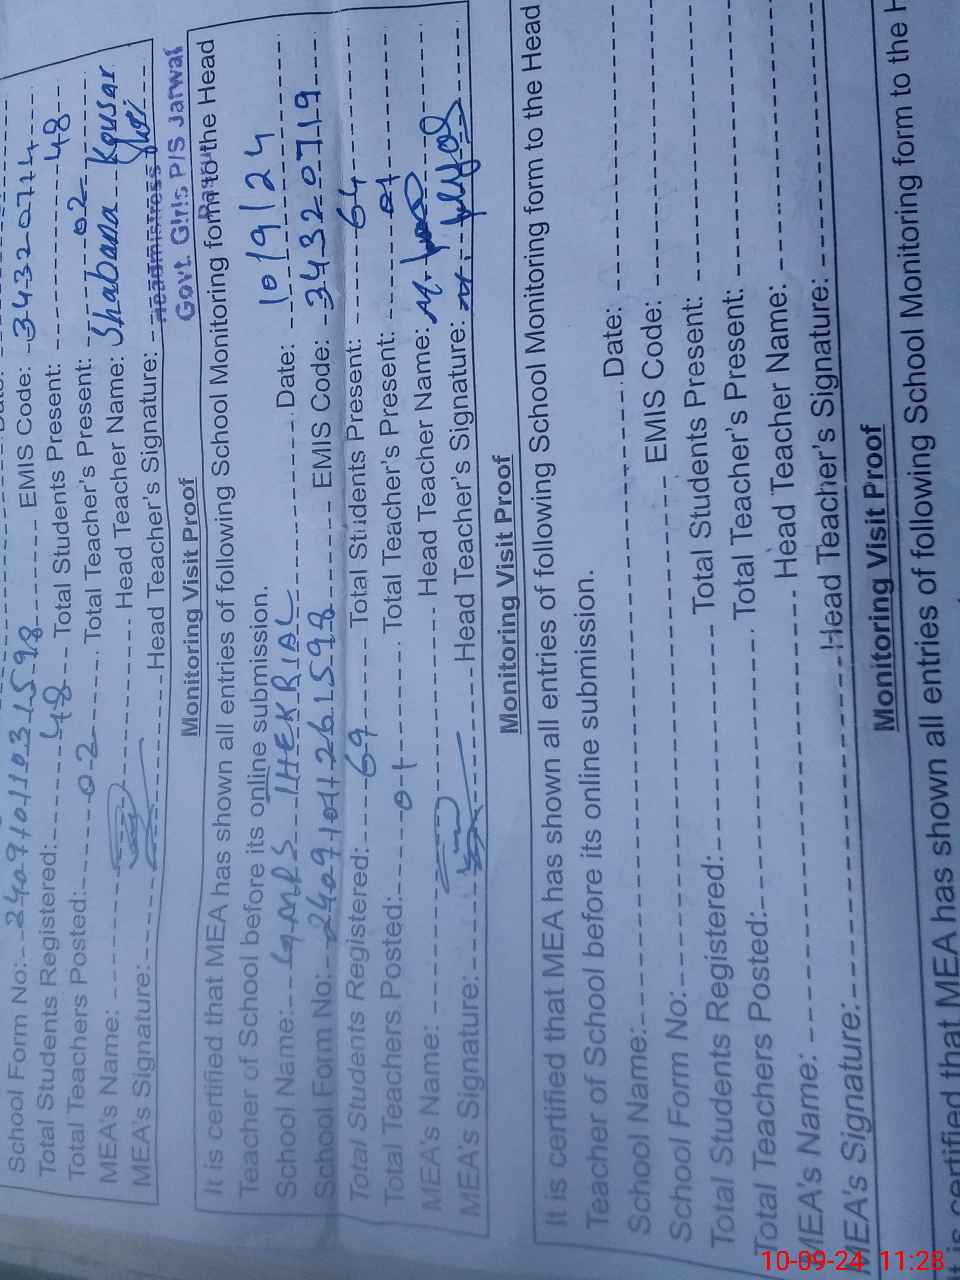 School Form No: 2409101103151598 EMIS Code: 34320744
Total Students Registered: 48 Total Students Present: 48
Total Teachers Posted: 02 Total Teacher's Present: 02
MEA's Name: Head Teacher Name: Shabana Kousar
MEA's Signature: Head Teacher's Signature:
Headmistress
Govt. Girls P/S Jarwal
Monitoring Visit Proof
It is certified that MEA has shown all entries of following School Monitoring form to the Head
Teacher of School before its online submission.
School Name: GMPS IHEKRIAL Date: 10/9/24
School Form No: EMIS Code: 34320719
Total Students Registered: 69 Total Students Present: 64
Total Teachers Posted: 01 Total Teacher's Present: 01
MEA's Name: Head Teacher Name: M.
MEA's Signature: Head Teacher's Signature: M.
Monitoring Visit Proof
It is certified that MEA has shown all entries of following School Monitoring form to the Head
Teacher of School before its online submission.
School Name: Date:
School Form No: EMIS Code:
Total Students Registered: Total Students Present:
Total Teachers Posted: Total Teacher's Present:
MEA's Name: Head Teacher Name:
MEA's Signature: Head Teacher's Signature:
Monitoring Visit Proof
It is certified that MEA has shown all entries of following School Monitoring form to the H
10-09-24 11:28